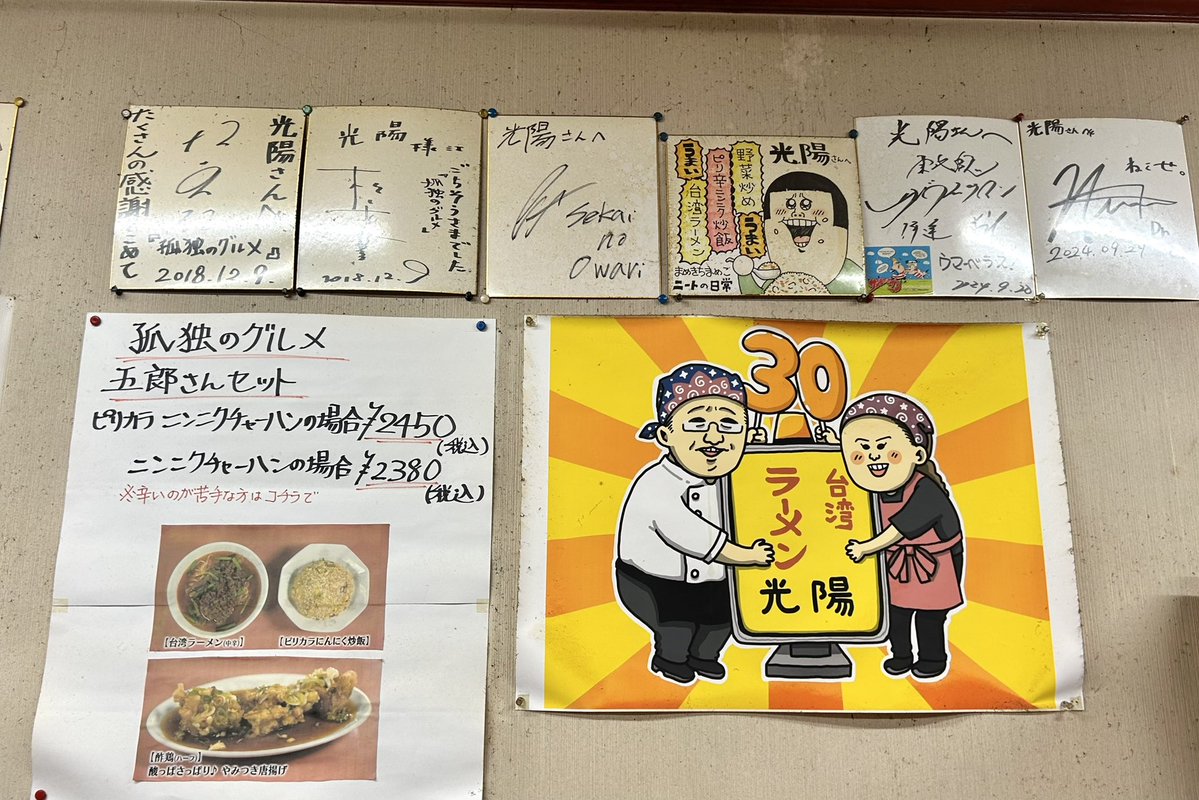 光陽さんへ
『孤独のグルメ』
2018.12.9.
たくさんの感謝こめて
光陽様
ごちそうさまでした
『孤独のグルメ』
2018.12.9
光陽さんへ
Sekai
no
Owari
光陽さんへ
野菜炒め
うまい
ピリ辛ニンニク炒飯
うまい
台湾ラーメン
まめきちまめこ
ニートの日常
光陽さんへ
ウマーベラス
2024.9.20
光陽さんへ
ねこぜ。
2024.09.24
孤独のグルメ
五郎さんセット
ピリカラ ニンニクチャーハンの場合 ¥2450
(税込)
ニンニクチャーハンの場合 ¥2380
(税込)
※辛いのが苦手な方はコチラで
【台湾ラーメン(中辛)】
【ピリカラにんにく炒飯】
【酢鶏(ハーフ)】
酸っぱさっぱり♪やみつき唐揚げ
30
台湾
ラーメン
光陽